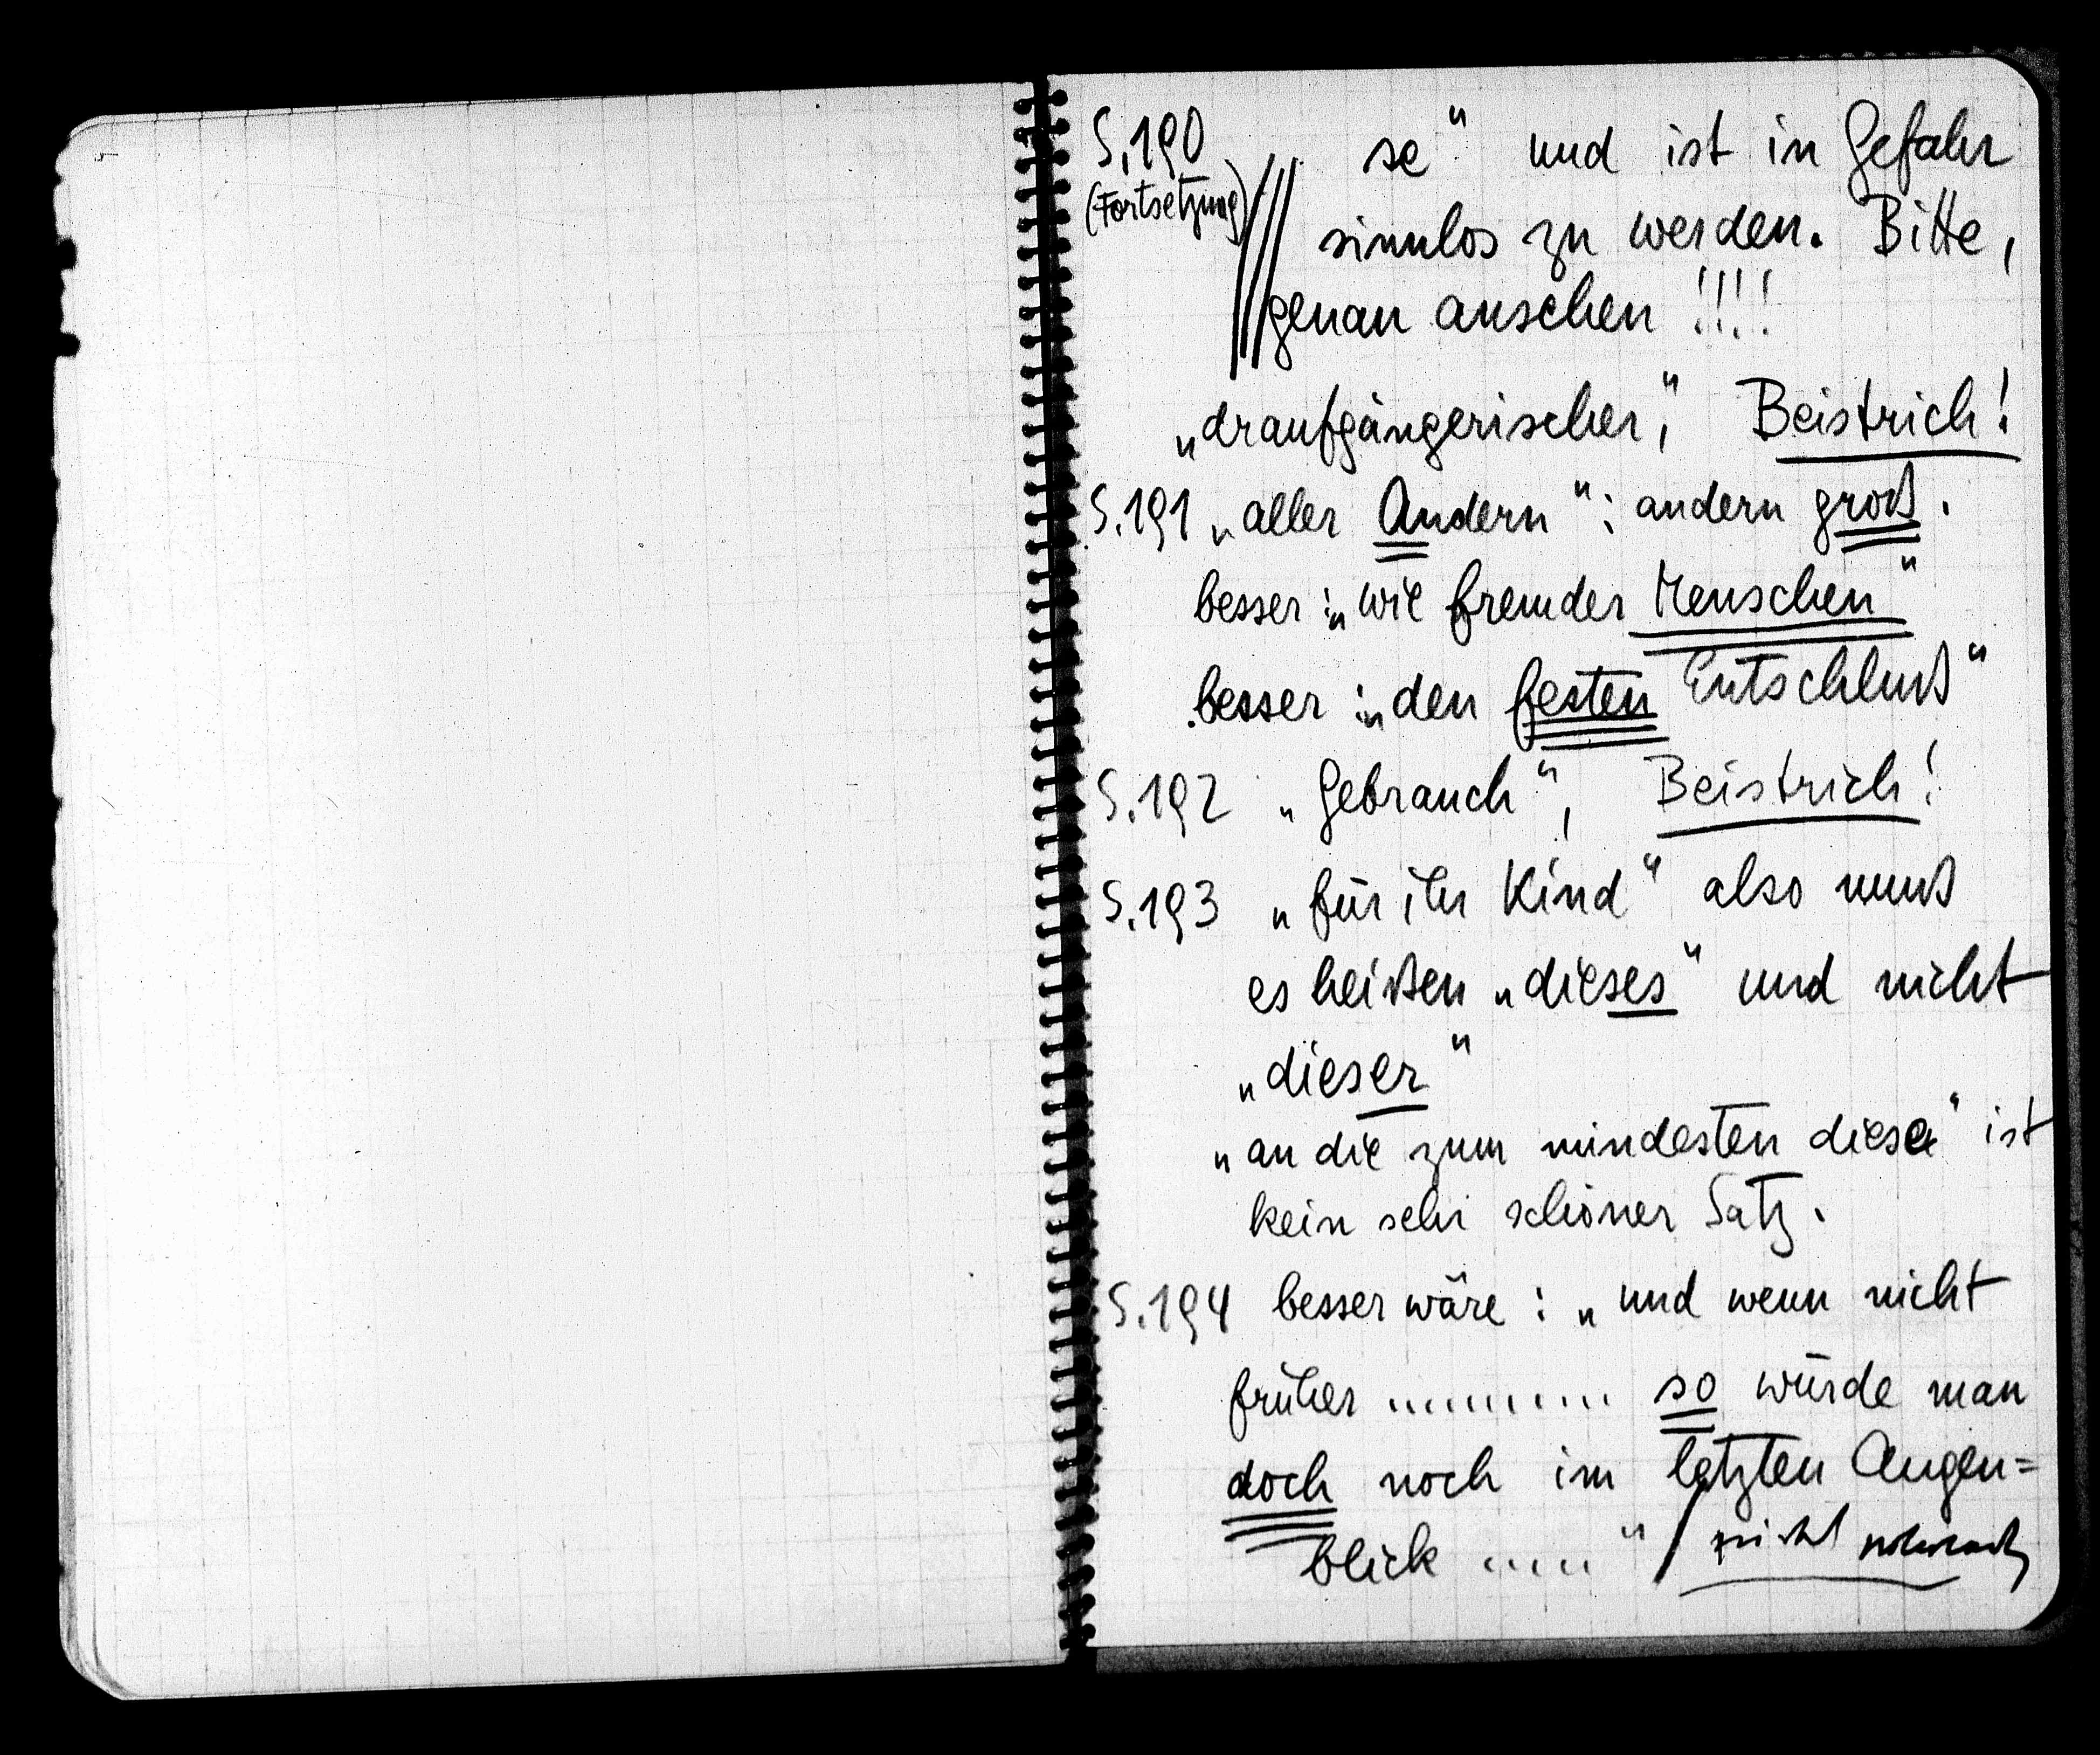 S. 190 se" und ist in Gefahr
(Fortsetzung)
sinnlos zu werden. Bitte,
genau ansehen !!!!
„draufgängerischer", Beistrich!
S. 191 „aller Andern": andern groß.
besser: „wie fremder Menschen"
besser: „den festen Entschluß"
S. 192 „Gebrauch", Beistrich!
S. 193 „für ihr Kind" also muß
es heißen „dieses" und nicht
„dieser"
„an die zum mindesten diese" ist
kein sehr schöner Satz.
S. 194 besser wäre: „und wenn nicht
früher ........... so würde man
doch noch im letzten Augen=
blick ....." / nicht